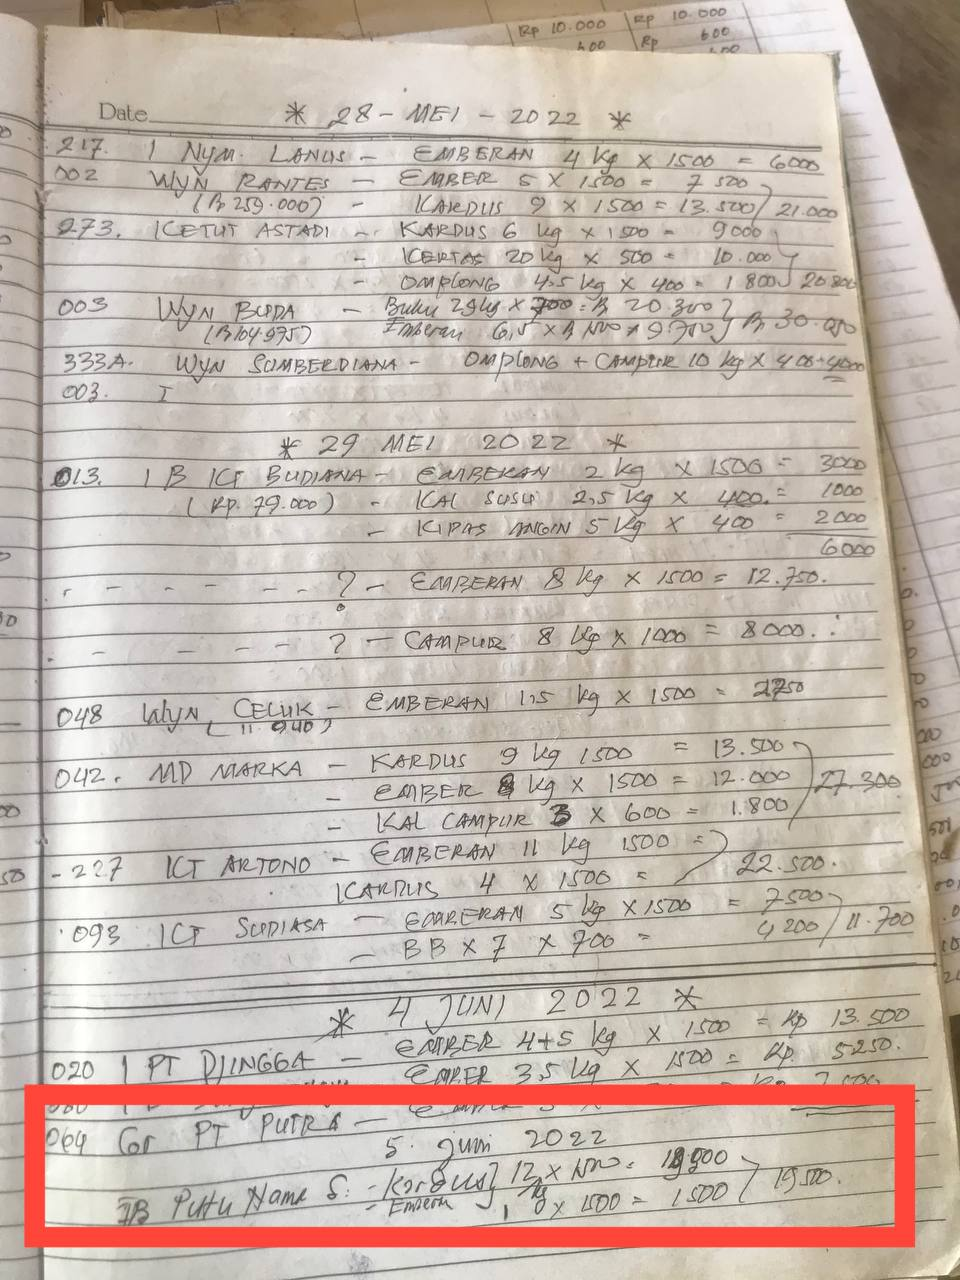 Rp 10.000 Rp 10.000
600 Rp 600
Date
* 28 - MEI - 2022 *
217. I NYM. LANUS - EMBERAN 4 kg X 1500 = 6000
002 WYN RANTES - EMBER 5 X 1500 = 7500
(Rp 259.000) - KARDUS 9 X 1500 = 13.500 21.000
273. KETUT ASTADI - KARDUS 6 kg X 1500 = 9000
- KERTAS 20 kg X 500 = 10.000
- OMPLONG 4.5 kg X 400 = 1.800 20.800
003 WYN BUDA - Buku 29 kg X 700 = Rp 20.300
(Rp 104.975) Emberan 6,5 X Rp 1500 = 9750 Rp 30.050
333A. WYN SUMBERDIANA - OMPLONG + CAMPUR 10 kg X 400 = 4000
003. I
* 29 MEI 2022 *
013. I B KT BUDIANA - EMBERAN 2 kg X 1500 = 3000
(Rp. 79.000) - KAL SUSU 2,5 kg X 400 = 1000
- KIPAS ANGIN 5 kg X 400 = 2000
6000
- - - - - - ? - EMBERAN 8 kg X 1500 = 12.750.
- - - - - - ? - CAMPUR 8 kg X 1000 = 8000.
048 WYN CELUK - EMBERAN 1,5 kg X 1500 = 2250
(11 940)
042. MD MARKA - KARDUS 9 kg 1500 = 13.500
- EMBER 8 kg X 1500 = 12.000 27.300
- KAL CAMPUR 3 X 600 = 1.800
- 227 KT ARTONO - EMBERAN 11 kg 1500 =
KARDUS 4 X 1500 = 22.500.
093 KT SUDIASA - EMBERAN 5 kg X 1500 = 7500
- BB X 7 X 700 = 4200 11.700
* 4 JUNI 2022 *
020 I PT DJINGGA - EMBER 4+5 kg X 1500 = Rp 13.500
EMBER 3,5 kg X 1500 = Rp. 5250.
064 Gr PT PUTRA -
5. juni 2022
IB Putu Name S. - Kardus 12 X 1500 = 18000
- Emberan 1 kg X 1500 = 1500 19.500.